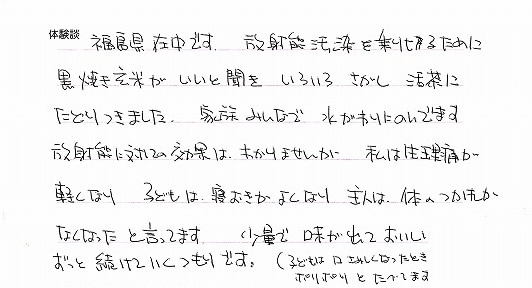 体験談
福島県在中です. 放射能汚染を乗りせきるために
黒焼き玄米がいいと聞き いろいろ さがし 活茶に
たどりつきました. 家族みんなで 水がわりにのんでます
放射能に対しての効果は、わかりませんが 私は生理痛が
軽くなり 子どもは、寝おきがよくなり 主人は、体のつかれが
なくなったと言ってます 少量で味が出ておいしい
ずっと続けていくつもりです。(子どもは口さみしくなったとき
ポリポリとたべてます